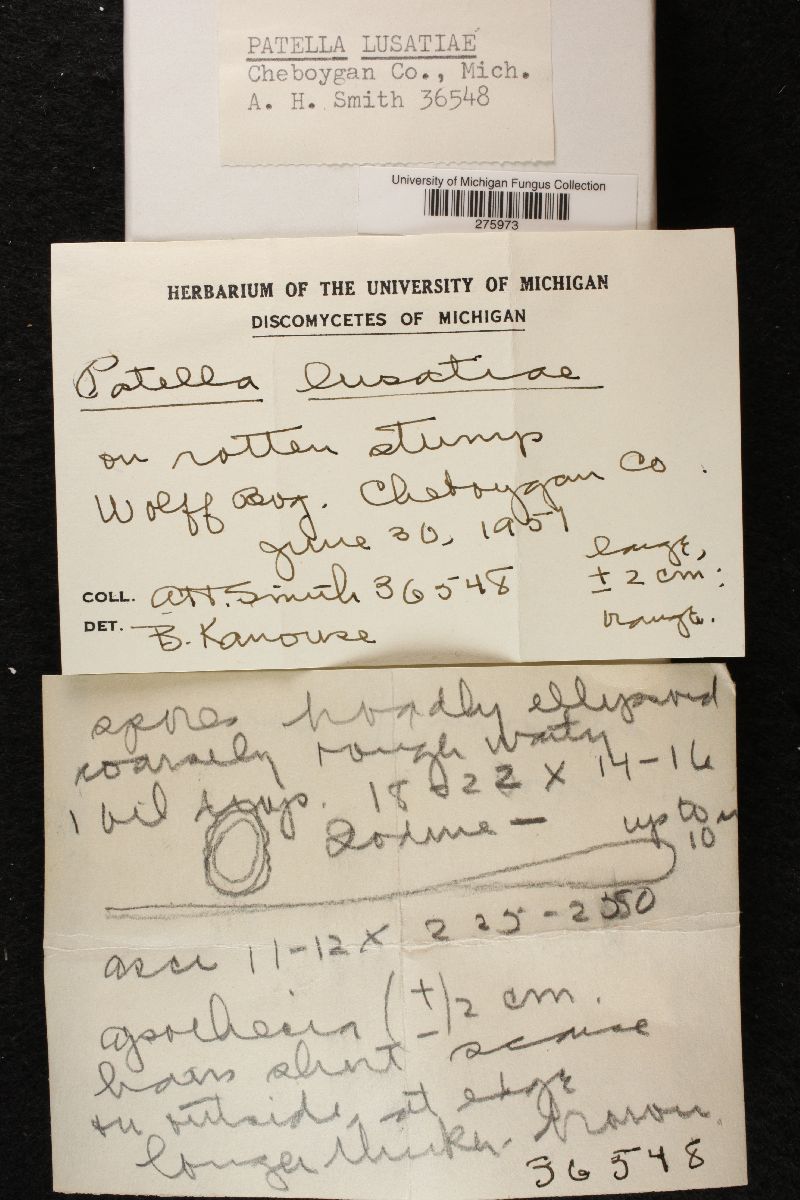 PATELLA LUSATIAE
Cheboygan Co., Mich.
A. H. Smith 36548
University of Michigan Fungus Collection
275973
HERBARIUM OF THE UNIVERSITY OF MICHIGAN
DISCOMYCETES OF MICHIGAN
Patella lusatiae
on rotten stump
Wolff Bog. Cheboygan Co.
June 30, 1951
large,
± 2 cm:
orange.
COLL. AH. Smith 36548
DET. B. Kanouse
spores broadly ellipsoid
coarsely rough warty
1 oil drop. 18-22 X 14-16
Iodine - up to
10
asci 11-12 X 225-250
apothecia (±) 2 cm.
hairs short scarce
on outside, at edge
longer thicker. brown.
36548